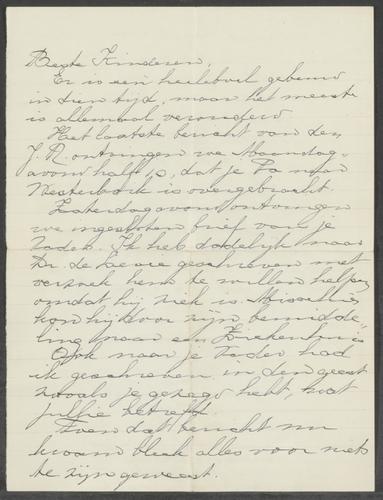 Beste Kinderen,
Er is een heeleboel gebeurd
in dien tijd, maar het meeste
is allemaal veranderd
Het laatste bericht van den
J. R. ontvingen we Maandag-
avond half 10, dat je Pa naar
Westerbork is overgebracht.
Zaterdagavond ontvingen
we ingesloten brief van je
Vader. Ik heb dadelijk naar
Dr. de geschreven met
verzoek hem te willen helpen
omdat hij ziek is. Misschien
kon hij door zijn bemidde-
ling naar een Ziekenhuis
Ook naar je Vader had
ik geschreven in den geest
zooals je gezegd hebt, wat
jullie betreft.
Toen dat bericht nu
kwam bleek alles voor niets
te zijn geweest.